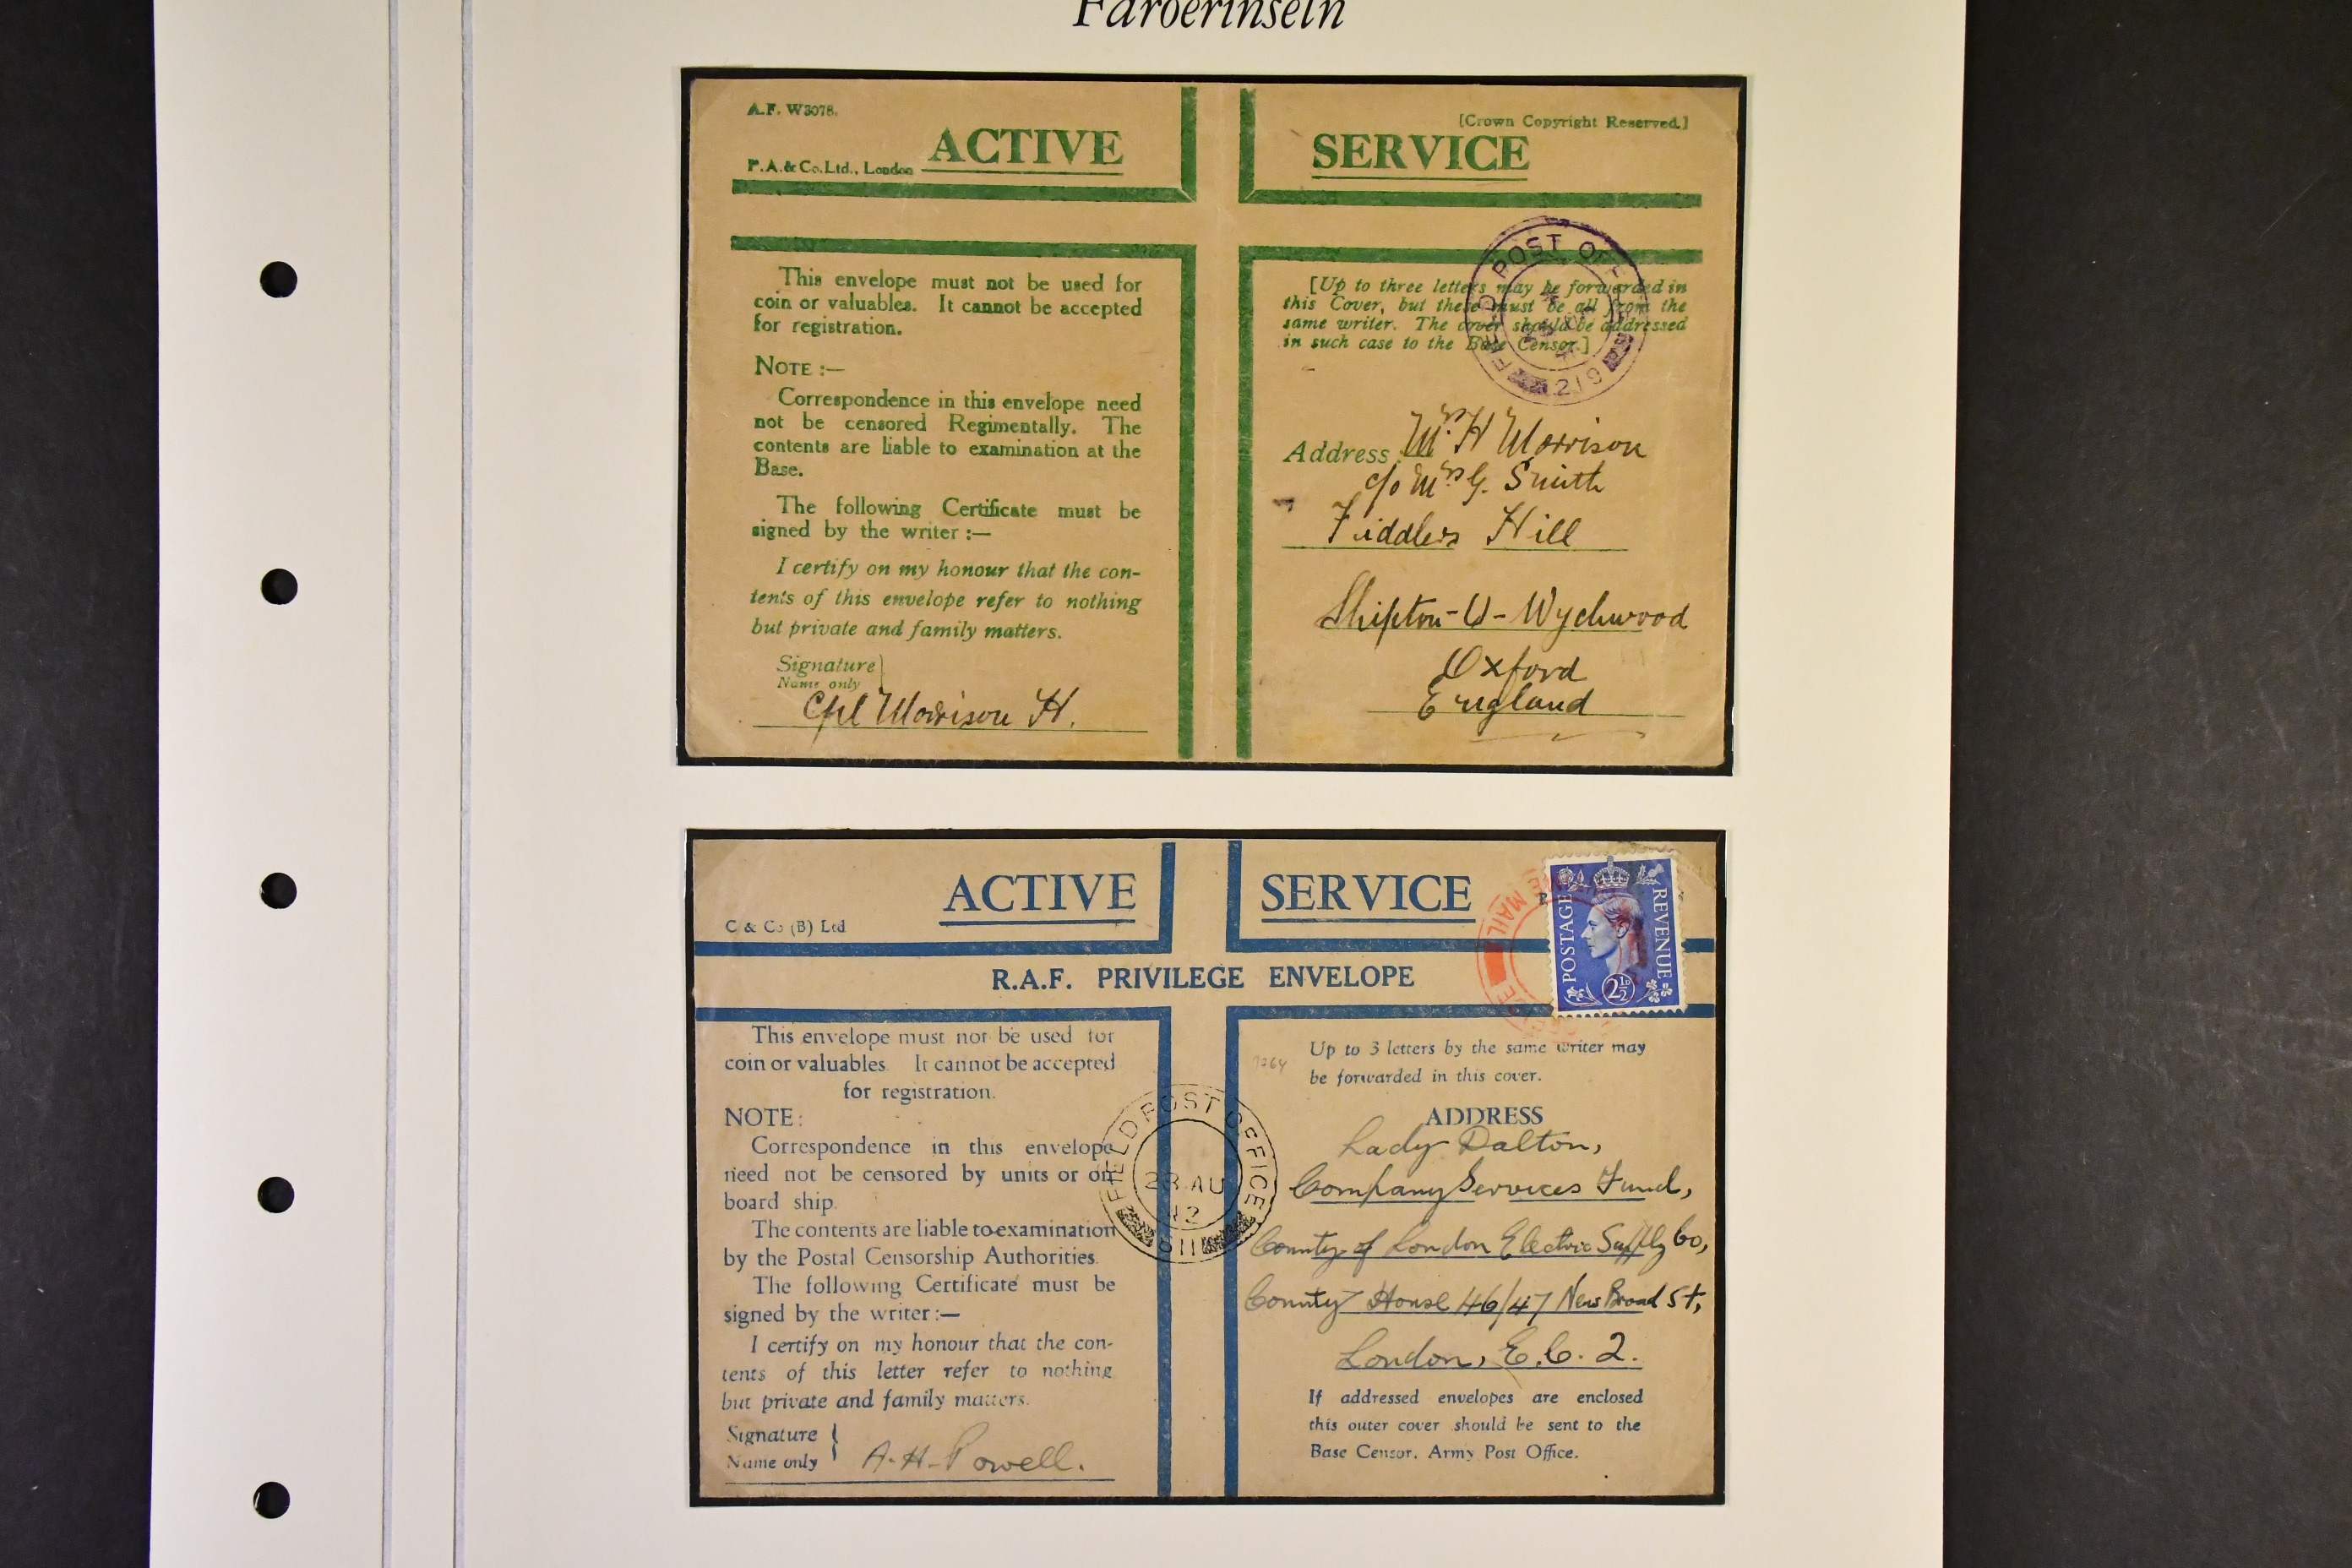 Färöerinseln
A.F. W3078.
[Crown Copyright Reserved.]
ACTIVE SERVICE
P.A. & Co. Ltd., London
This envelope must not be used for
coin or valuables. It cannot be accepted
for registration.
NOTE :—
Correspondence in this envelope need
not be censored Regimentally. The
contents are liable to examination at the
Base.
The following Certificate must be
signed by the writer :—
I certify on my honour that the con-
tents of this envelope refer to nothing
but private and family matters.
Signature
Name only
Cpl Morrison H.
[Up to three letters may be forwarded in
this Cover, but these must be all from the
same writer. The cover should be addressed
in such case to the Base Censor.]
FIELD POST OFFICE
219
Address
Mrs H Morrison
c/o Mrs G. Smith
Fiddlers Hill
Shipton-U-Wychwood
Oxford
England
ACTIVE SERVICE
C & Co (B) Ltd
R.A.F. PRIVILEGE ENVELOPE
POSTAGE REVENUE
2½D
MAIL
This envelope must not be used for
coin or valuables It cannot be accepted
for registration.
NOTE:
Correspondence in this envelope
need not be censored by units or on
board ship.
The contents are liable to examination
by the Postal Censorship Authorities.
The following Certificate must be
signed by the writer :—
I certify on my honour that the con-
tents of this letter refer to nothing
but private and family matters.
Signature
Name only
A. H. Powell.
FIELD POST OFFICE
28 AU
42
611
Up to 3 letters by the same writer may
be forwarded in this cover.
ADDRESS
Lady Dalton,
Company Services Fund,
County of London Electric Supply Co,
County House 46/47 New Broad St,
London, E.C. 2.
If addressed envelopes are enclosed
this outer cover should be sent to the
Base Censor, Army Post Office.